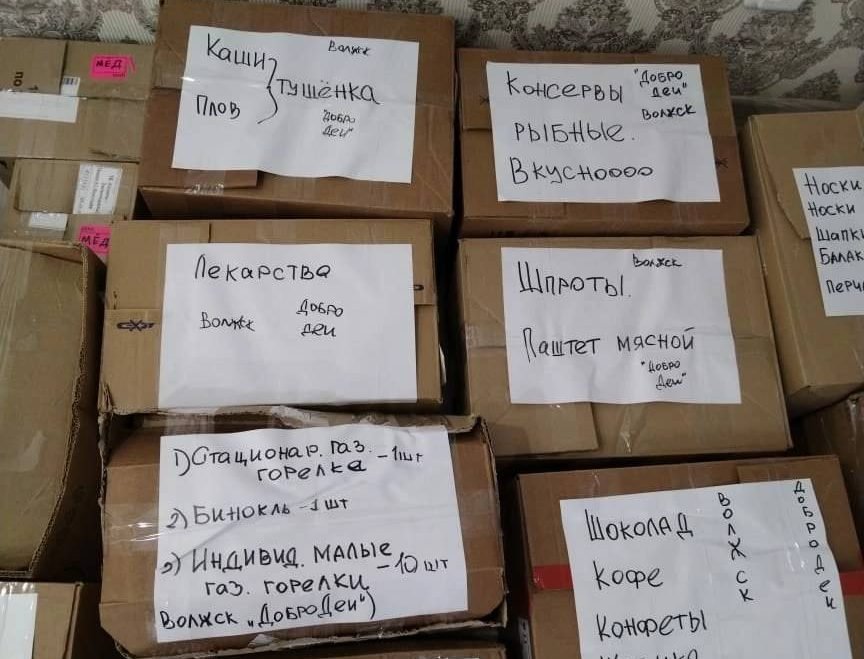 МЁД
Каши Волжск
Плов
Тушёнка
"Добро
Деи"
Консервы "Добро
Деи"
Волжск
рыбные.
Вкусноооо
МЁД
Лекарства
Волжск Добро
Деи
Шпроты. Волжск
Паштет мясной
"Добро
Деи"
Носки
Носки
Шапки
Балак
Перча
1) Стационар. газ. – 1шт
горелка
2) Бинокль – 1 шт
3) Индивид. малые – 10 шт
газ. горелки
Волжск „ДоброДеи")
Шоколад
Кофе
Конфеты
Волжск
Добродеи